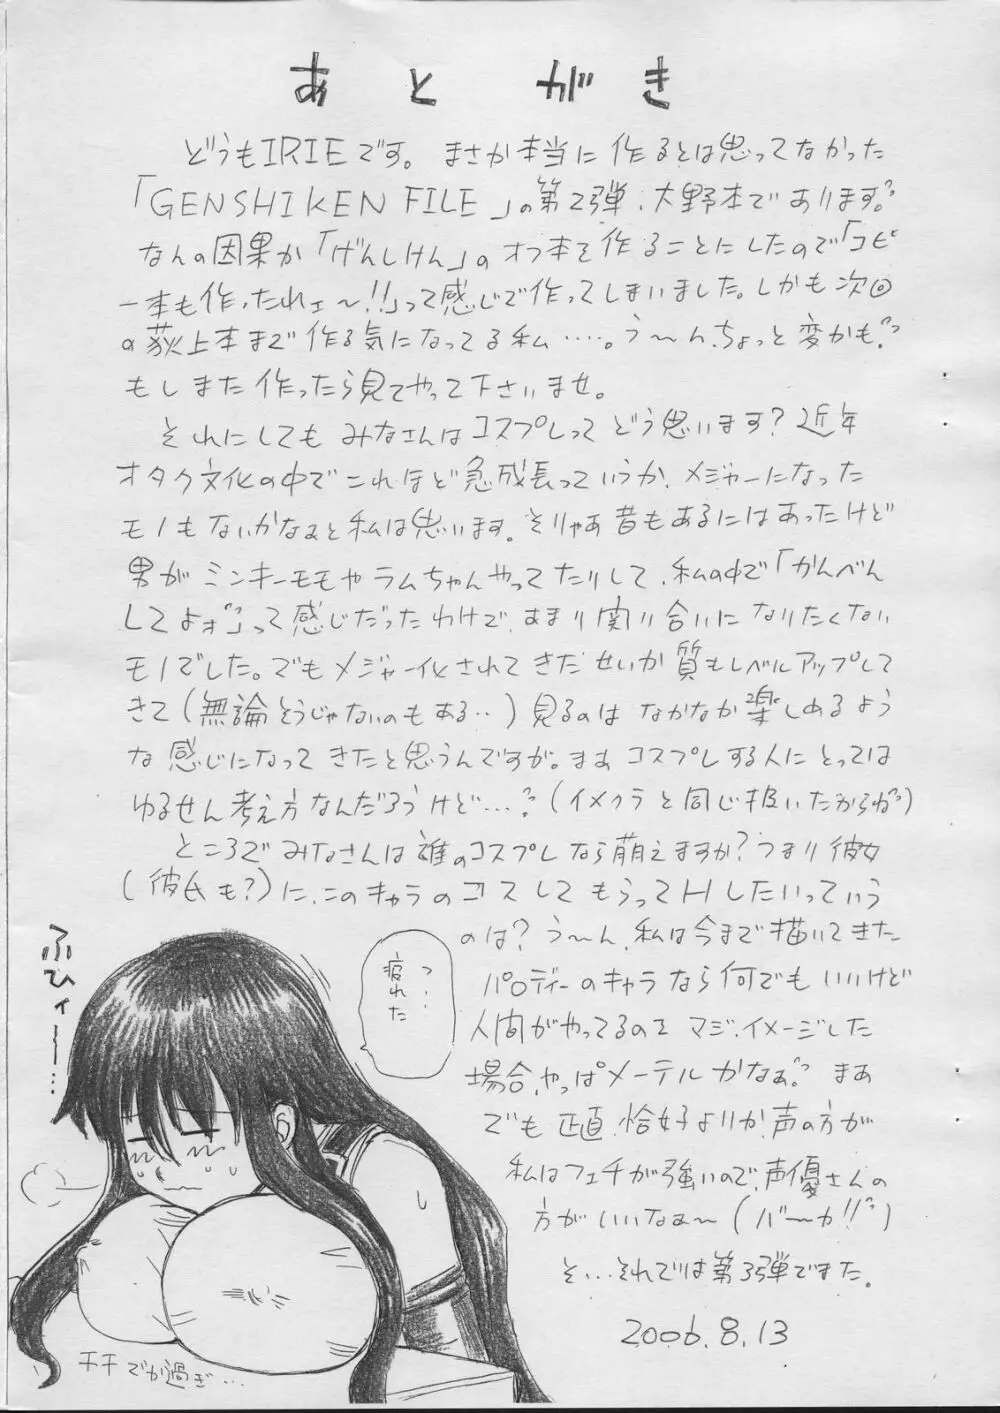 あとがき
どうもIRIEです。まさか本当に作るとは思ってなかった
「GENSHIKEN FILE」の第2弾、大野本であります。
なんの因果か「げんしけん」のオフ本を作ることにしたので「コピ
ー本も作ったれェ〜!!」って感じで作ってしまいました。しかも次回
の荻上本まで作る気になってる私……。う〜ん、ちょっと変かも?
もしまた作ったら見てやって下さいませ。
それにしてもみなさんはコスプレってどう思います?近年
オタク文化の中でこれほど急成長っていうか、メジャーになった
モノもないかなぁと私は思います。そりゃあ昔もあるにはあったけど
男がミンキーモモやラムちゃんやってたりして、私の中で「かんべん
してよォ」って感じだったわけで、あまり関り合いになりたくない
モノでした。でもメジャー化されてきたせいか質もレベルアップして
きて(無論そうじゃないのもある‥)見るのはなかなか楽しめるよう
な感じになってきたと思うんですが。まぁコスプレする人にとっては
ゆるせん考え方なんだろうけど…。(イメクラと同じ扱いだからね)
ところでみなさんは誰のコスプレなら萌えますか?つまり彼女
(彼氏も?)に、このキャラのコスしてもらってHしたいっていう
のは?う〜ん、私は今まで描いてきた
パロディーのキャラなら何でもいいけど
人間がやってるのをマジ、イメージした
場合、やっぱメーテルかなぁ。まぁ
でも正直、恰好よりか、声の方が
私はフェチが強いので、声優さんの
方がいいなぁ〜(バーカ!!)
そ…それでは第3弾でまた。
2006.8.13
ふひィー…
つ…
疲れた
チチでか過ぎ…